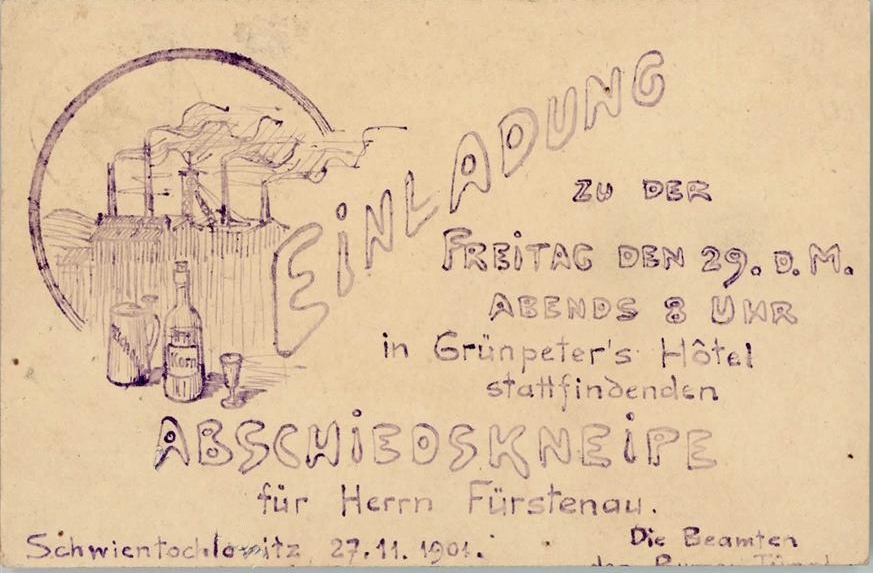 EINLADUNG
ZU DER
FREITAG DEN 29. D. M.
ABENDS 8 UHR
in Grünpeter's Hôtel
stattfindenden
Korn
ABSCHIEDSKNEIPE
für Herrn Fürstenau.
Schwientochlowitz 27.11.1901.
Die Beamten